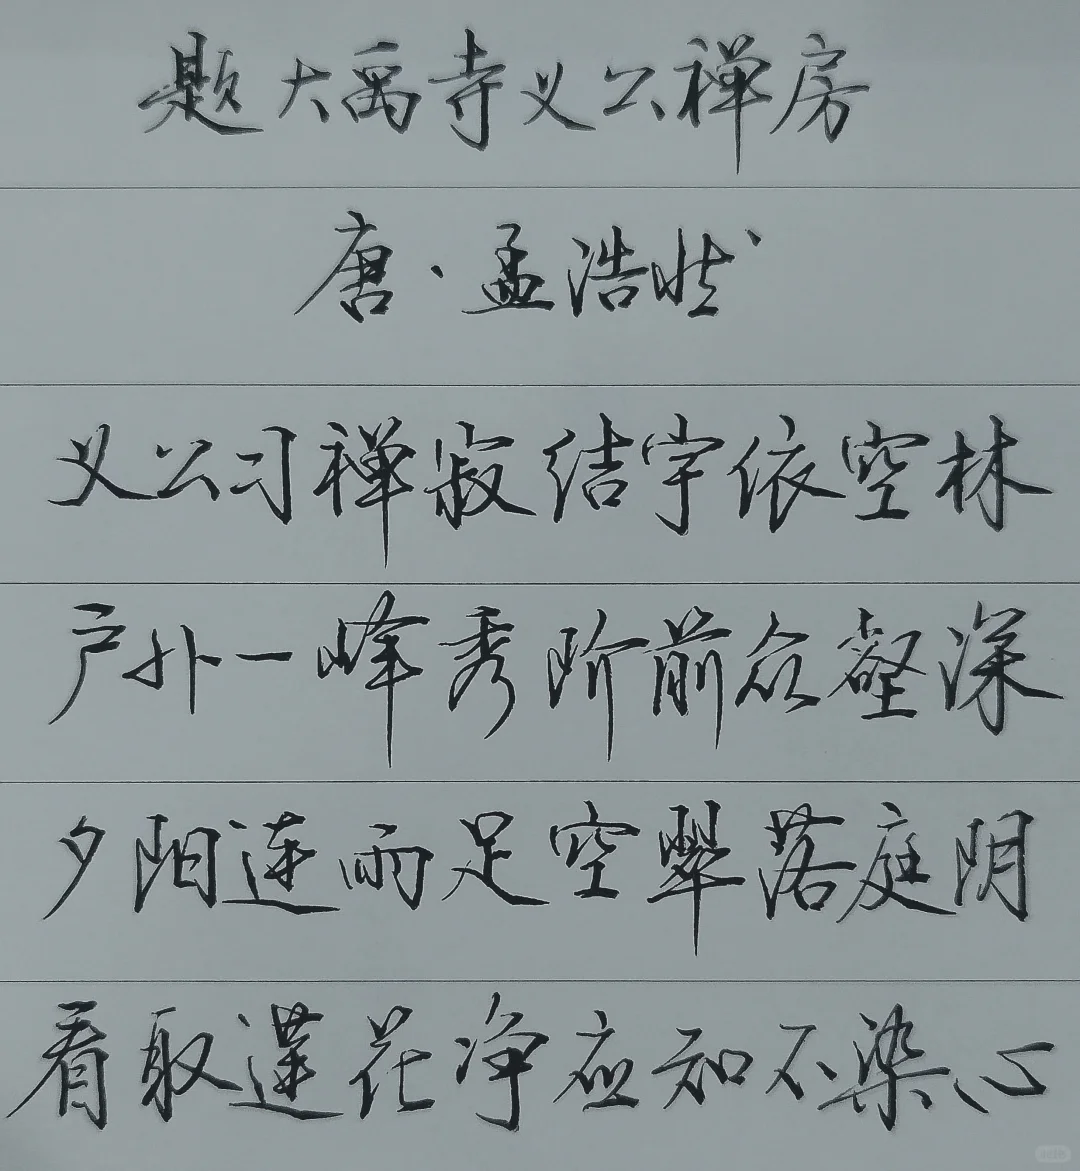 题大禹寺义公禅房
唐·孟浩然
义公习禅寂结宇依空林
户外一峰秀阶前众壑深
夕阳连雨足空翠落庭阴
看取莲花净应知不染心